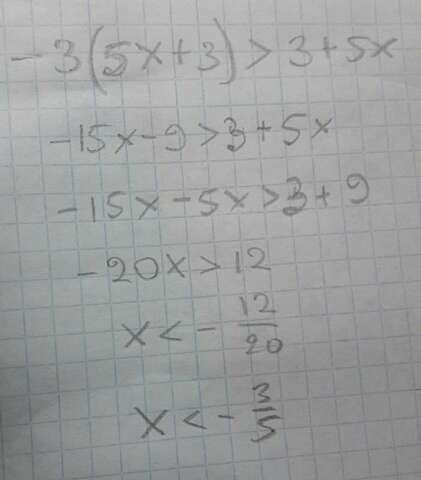 -3(5x+3)>3+5x
-15x-9>3+5x
-15x-5x>3+9
-20x>12
x<-12/20
x<-3/5